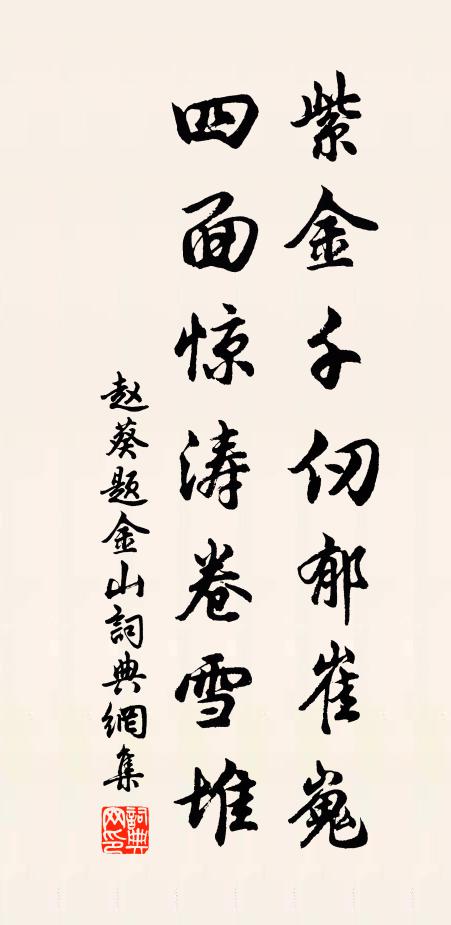 紫金千仞郁崔嵬
四面惊涛卷雪堆
赵葵题金山詞典網集
詞典网印